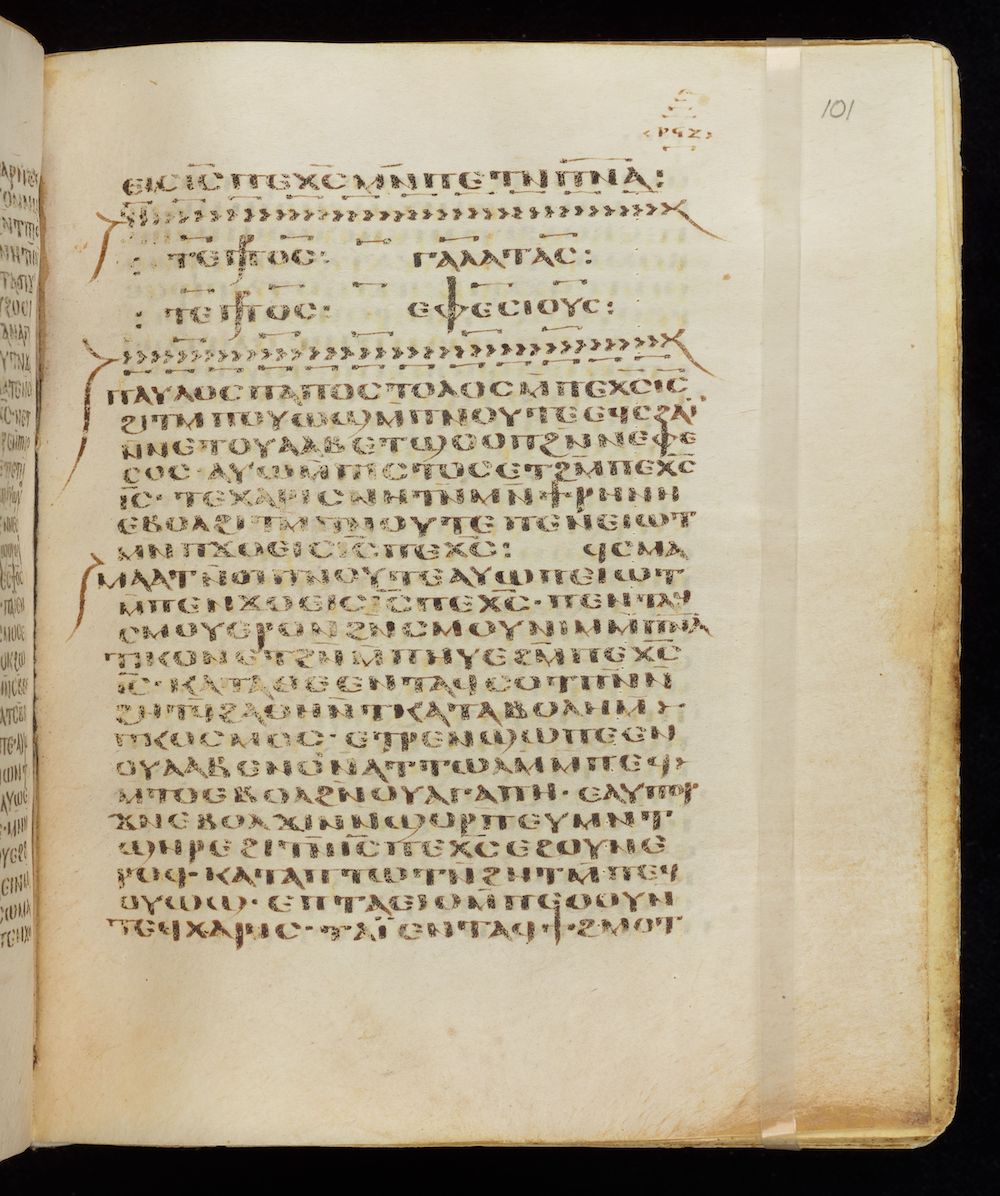 101
ⲣϥⲍ
ⲉⲓⲥ ⲓ̅ⲥ̅ ⲡⲉⲭ̅ⲥ̅ ⲙⲛ̅ ⲡⲉⲧⲛ̅ⲡ̅ⲛ̅ⲁ̅:
: ⲧⲉⲡⲣⲟⲥ: ⲅⲁⲗⲁⲧⲁⲥ:
: ⲧⲉⲡⲣⲟⲥ: ⲉⲫⲉⲥⲓⲟⲩⲥ:
ⲡⲁⲩⲗⲟⲥ ⲡⲁⲡⲟⲥⲧⲟⲗⲟⲥ ⲙ̅ⲡⲉⲭ̅ⲥ̅ ⲓ̅ⲥ̅
ϩⲓⲧⲙ̅ ⲡⲟⲩⲱϣ ⲙ̅ⲡⲛⲟⲩⲧⲉ ⲉϥⲥϩⲁⲓ̈
ⲛ̅ⲛⲉⲧⲟⲩⲁⲁⲃ ⲉⲧϣⲟⲟⲡ ϩⲛ̅ ⲛⲉⲫⲉ
ⲥⲟⲥ· ⲁⲩⲱ ⲙ̅ⲡⲓⲥⲧⲟⲥ ⲉⲧϩⲙ̅ ⲡⲉⲭ̅ⲥ̅
ⲓ̅ⲥ̅· ⲧⲉⲭⲁⲣⲓⲥ ⲛⲏⲧⲛ̅ ⲙⲛ̅ ϯⲣⲏⲛⲏ
ⲉⲃⲟⲗ ϩⲓⲧⲙ̅ ⲡⲛⲟⲩⲧⲉ ⲡⲉⲛⲉⲓⲱⲧ
ⲙⲛ̅ ⲡϫⲟⲉⲓⲥ ⲓ̅ⲥ̅ ⲡⲉⲭ̅ⲥ̅: ϥⲥⲙⲁ
ⲙⲁⲁⲧ ⲛ̅ϭⲓ ⲡⲛⲟⲩⲧⲉ ⲁⲩⲱ ⲡⲉⲓⲱⲧ
ⲙ̅ⲡⲉⲛϫⲟⲉⲓⲥ ⲓ̅ⲥ̅ ⲡⲉⲭ̅ⲥ̅· ⲡⲉⲛⲧⲁϥ
ⲥⲙⲟⲩ ⲉⲣⲟⲛ ϩⲛ̅ ⲥⲙⲟⲩ ⲛⲓⲙ ⲙ̅ⲡ̅ⲛ̅ⲁ̅
ⲧⲓⲕⲟⲛ ⲉⲧϩⲛ̅ ⲙ̅ⲡⲏⲩⲉ ϩⲙ̅ ⲡⲉⲭ̅ⲥ̅
ⲓ̅ⲥ̅· ⲕⲁⲧⲁ ⲑⲉ ⲉⲛⲧⲁϥⲥⲟⲧⲡⲛ̅ ⲛ̅
ϩⲏⲧϥ̅ ϩⲁⲑⲏ ⲛ̅ⲧⲕⲁⲧⲁⲃⲟⲗⲏ ⲙ̅
ⲡⲕⲟⲥⲙⲟⲥ· ⲉⲧⲣⲉⲛϣⲱⲡⲉ ⲉⲛ
ⲟⲩⲁⲁⲃ ⲉⲛⲟ ⲛ̅ⲁⲧⲧⲱⲗⲙ̅ ⲙ̅ⲡⲉϥ
ⲙ̅ⲧⲟ ⲉⲃⲟⲗ ϩⲛ̅ ⲟⲩⲁⲅⲁⲡⲏ· ⲉⲁϥⲡⲟⲣ
ϫⲛ̅ ⲉⲃⲟⲗ ϫⲓⲛ ⲛ̅ϣⲟⲣⲡ ⲉⲩⲙⲛ̅ⲧ
ϣⲏⲣⲉ ϩⲓⲧⲛ̅ ⲓ̅ⲥ̅ ⲡⲉⲭ̅ⲥ̅ ⲉϩⲟⲩⲛ ⲉ
ⲣⲟϥ· ⲕⲁⲧⲁ ⲡⲧⲱⲧ ⲛ̅ϩⲏⲧ ⲙ̅ⲡⲉϥ
ⲟⲩⲱϣ· ⲉⲡⲧⲁⲉⲓⲟ ⲙ̅ⲡⲉⲟⲟⲩ ⲛ̅
ⲧⲉϥⲭⲁⲣⲓⲥ· ⲧⲁⲓ̈ ⲉⲛⲧⲁϥϯϩⲙⲟⲧ